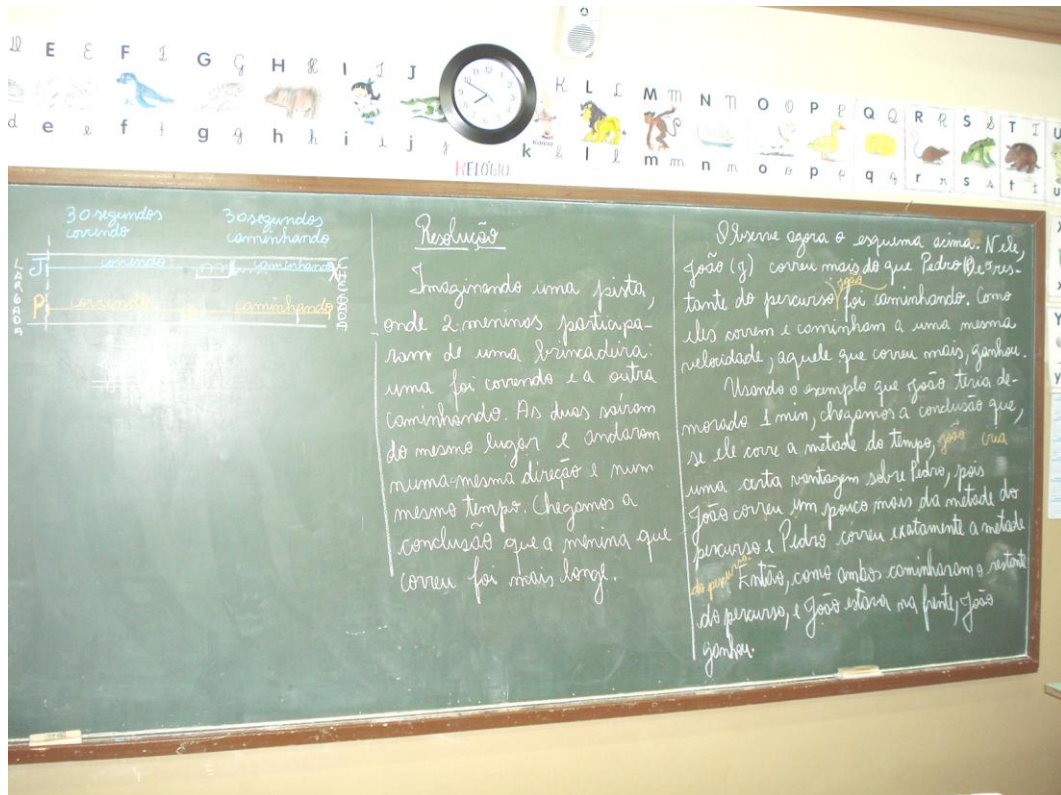 E F G H I J K L M N O P Q R S T U
d e f g h i j k l m n o p q r s t u
RELÓGIO
30 segundos correndo
30 segundos caminhando
LARGADA
J correndo caminhando
P correndo caminhando
CHEGADA
Resolução
Imaginando uma pista,
onde 2 meninas participa-
ram de uma brincadeira:
uma foi correndo e a outra
caminhando. As duas saíram
do mesmo lugar e andaram
numa mesma direção e num
mesmo tempo. Chegamos a
conclusão que a menina que
correu foi mais longe.
Observe agora o esquema acima. Nele,
João (J) correu mais do que Pedro (P) e o res-
tante do percurso João foi caminhando. Como
eles correm e caminham a uma mesma
velocidade, aquele que correu mais, ganhou.
Usando o exemplo que João teria de-
morado 1 min, chegamos a conclusão que,
se ele corre a metade do tempo, João cria
uma certa vantagem sobre Pedro, pois
João correu um pouco mais da metade do
percurso e Pedro correu exatamente a metade
do percurso. Então, como ambos caminharam o restante
do percurso, e João estava na frente, João
ganhou.